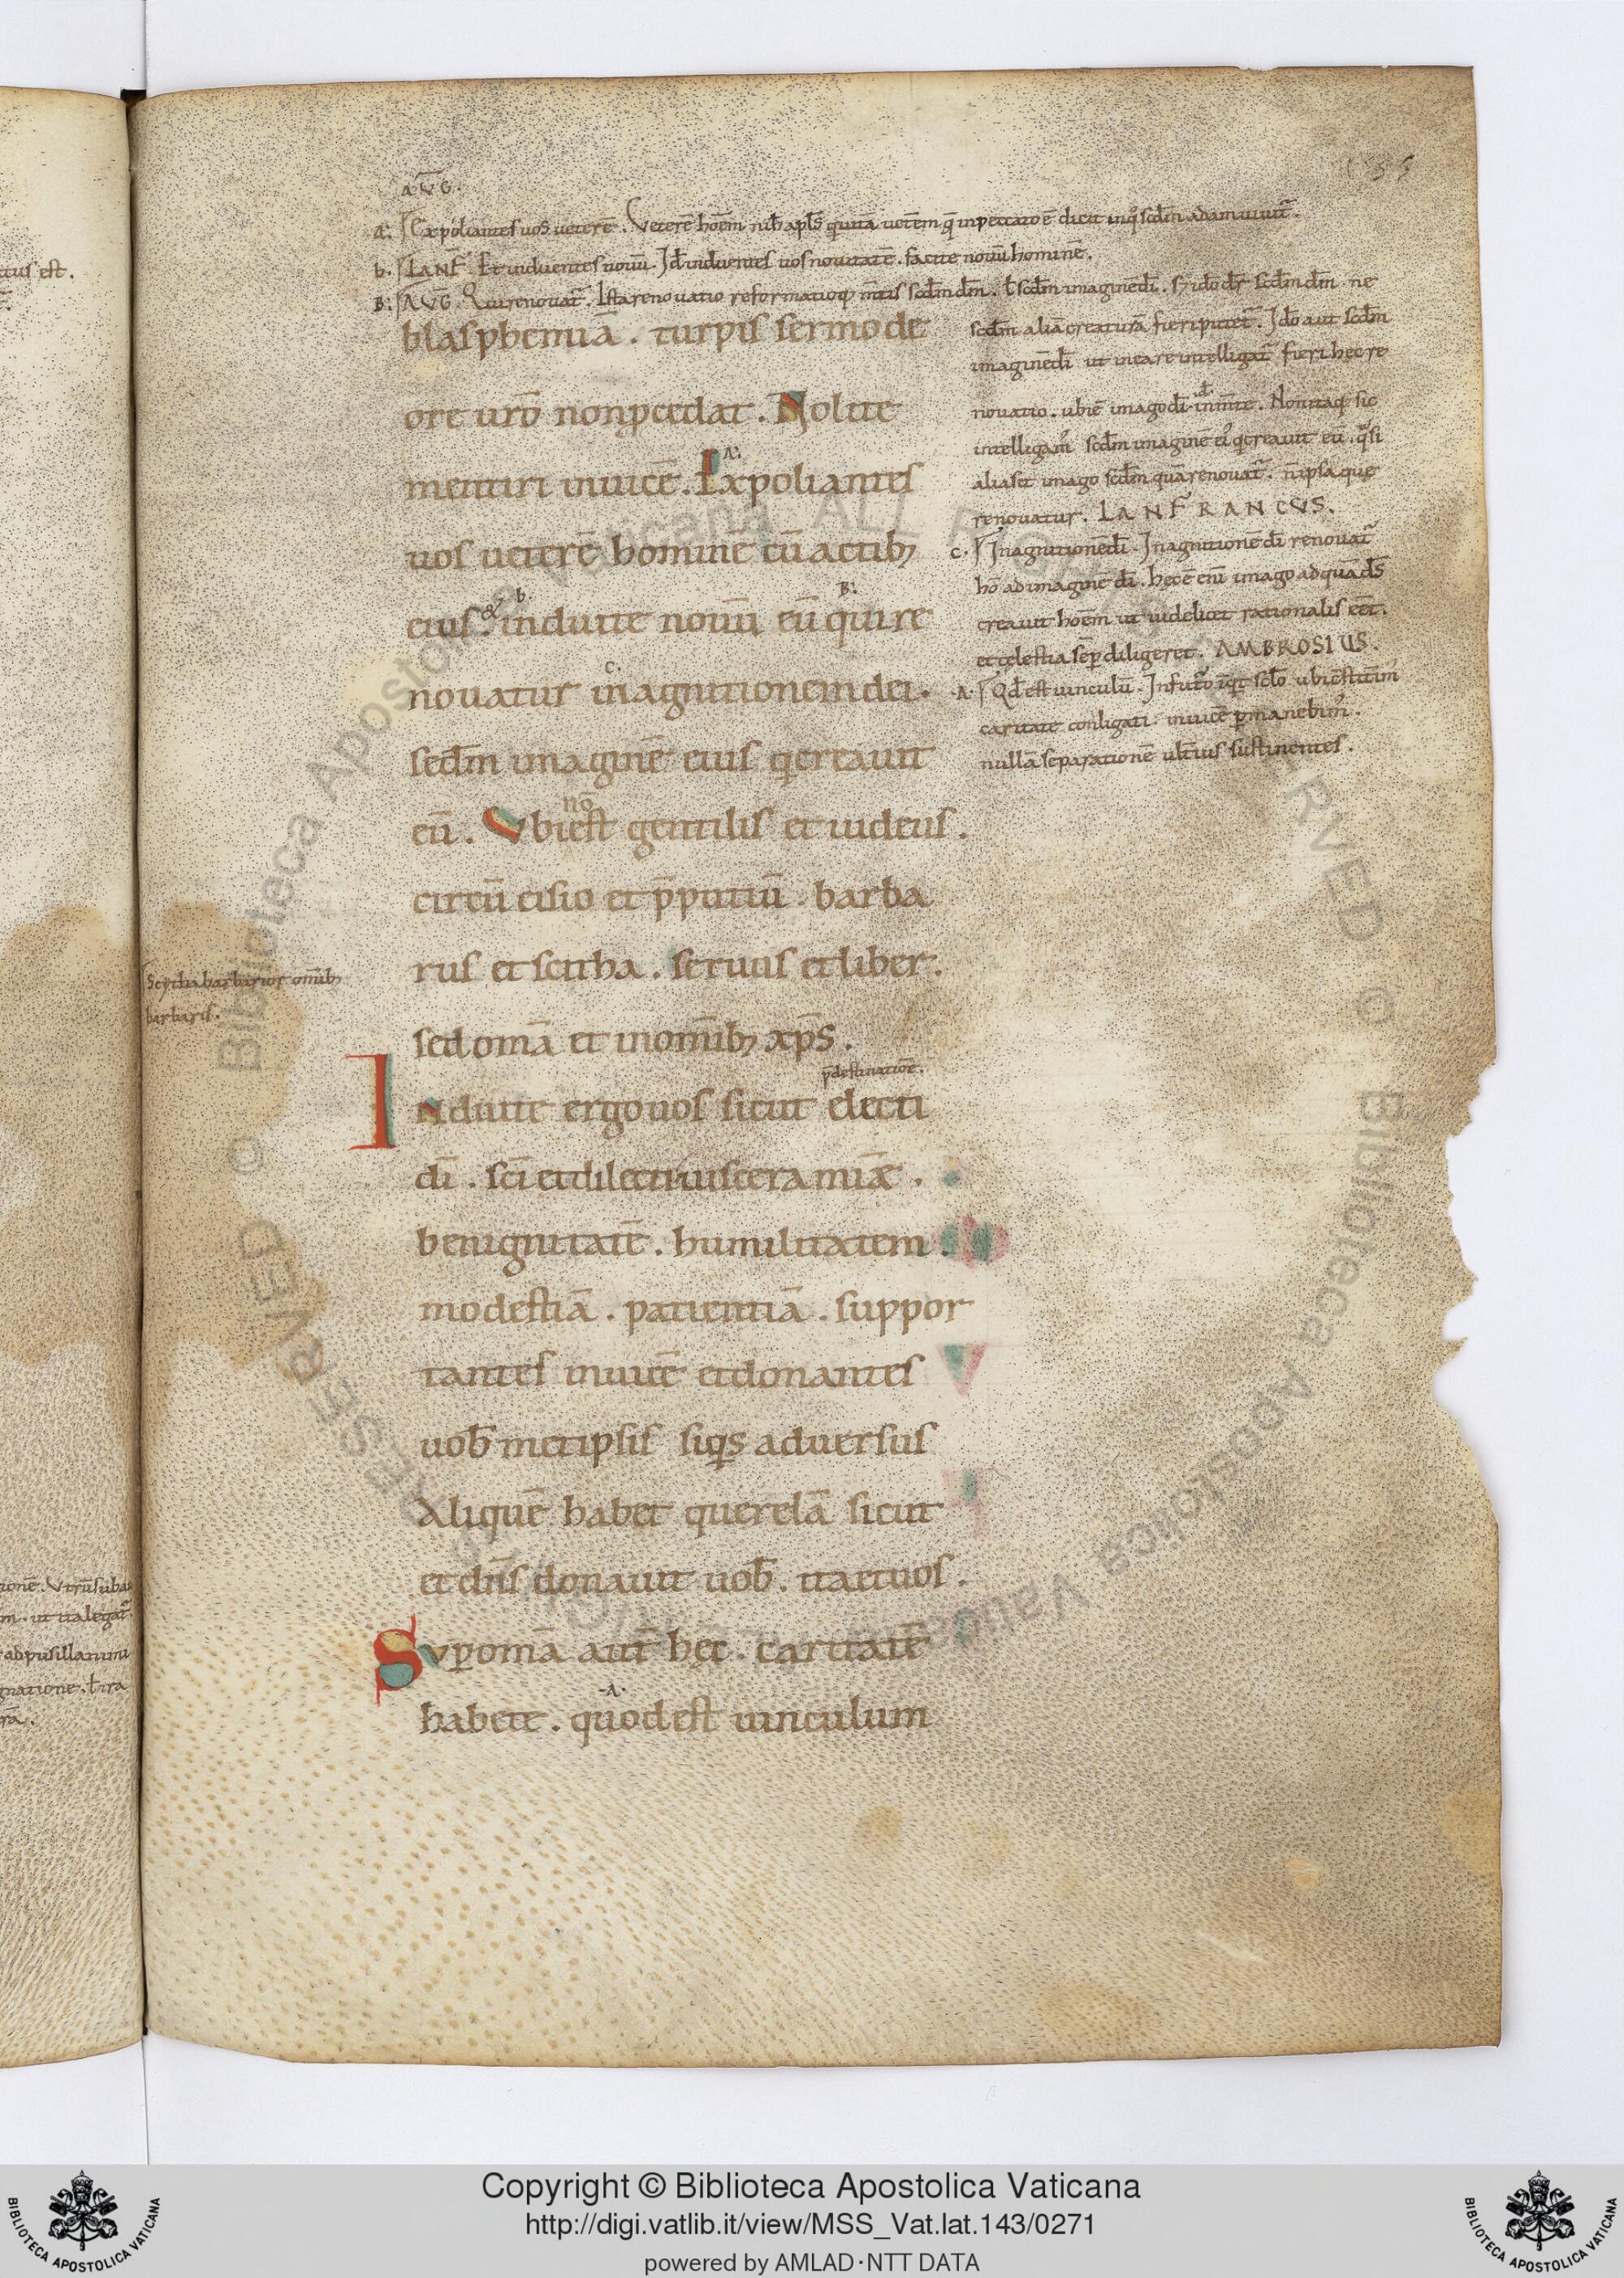 135
AVḠ.
a: Expoliantes uos ueterē. Veterē hōem nih̄ apl̄s quitā uetēm q̄ inpeccato ē dicit inq̊ scdm̄ adam uiuit᷑.
b. LANF̄. Et induentes nouū. Id̄ induentes uos nouitatē. facite nouū hominē.
B: AVḠ. Qui renouat᷑. Ista renouatio reformatioq; m̄tis scdm̄ dm̄. ł scdm̄ imaginē dī. s; idō dr̄ scdm̄ dm̄ ne
scdm̄ aliā creaturā fieri putet᷑. Idō aut scdm̄
imaginē dī ut in ea re intelligat᷑ fieri hec re
novatio. ubi ē imago dī .id. in m̄te. Non itaq; sic
intelligam᷒ scdm̄ imaginē ei᷒ q̇ creauit eū. q̊si
alia sit imago scdm̄ quā renouat᷑. n̄ ipsa que
renouatur. LANFRANCVS.
c. In agnitionē dī. In agnitionē dī renouat᷑
hō ad imaginē dī. hec ē enī imago ad quā d̄s
creauit hoēm ut uidelicet rationalis eēt.
et celestia sēp diligeret. AMBROSIUS.
.A. Qd̄ est uinculū. In futuro
caritate conligati. inuicē ꝑmanebim᷒.
nullā separationē ult̄ius sustinentes.
blasphemiā. turpis sermo de
ore ur̄o non ꝓcedat. Nolite
mentiri inuicē. A: Expoliantes
uos ueterē hominē cū actib;
eius. & b. induite nouū eū B: qui re
novatur c. in agnitionem dei.
scdm̄ imaginē eius q̇ creauit
eū. Vbi nō est gentilis et iudeus.
circū cisio et p̄putiū. barba
rus et scitha. seruus et liber.
Scythia barbarior omībꝫ
barbaris.
sed om̄a et in om̄ib; xp̄s.
p̄destinatiōe.
Induite ergo uos sicut electi
dī. sc̄i et dilecti uiscera mīæ.
benignitatē. humilitatem.
modestiā. patientiā. suppor
tantes inuicē et donantes
uob̄ metipsis siq̇s aduersus
Aliquē habet querelā sicut
et dn̄s donauit uob̄. ita et uos.
Suꝑ om̄a aut̄ hęc. caritatē
habete. .A. quod est uinculum
tus est.
ionē. Vtrū suba
m. ut ita legat᷑.
ad pusillanimi
gnatione. ł ira
rā.
Biblioteca Apostolica Vaticana ALL RIGHTS RESERVED © Biblioteca Apostolica Vaticana ALL RIGHTS RESERVED ©
Copyright © Biblioteca Apostolica Vaticana
http://digi.vatlib.it/view/MSS_Vat.lat.143/0271
powered by AMLAD·NTT DATA
BIBLIOTECA APOSTOLICA VATICANA
BIBLIOTECA APOSTOLICA VATICANA